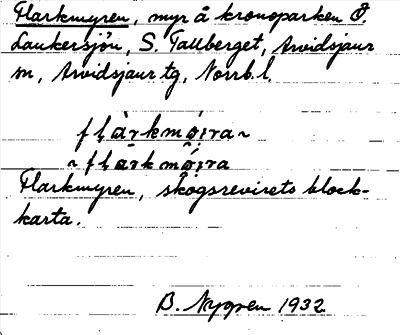 Flarkmyren, myr å kronoparken Ö.
Laukersjön, S. Tallberget, Arvidsjaur
sn, Arvidsjaur tg, Norrb. l.
flàrkmø̀ira ~
~ flàrkmø̂ira
Flarkmyren, skogsrevirets block-
karta.
B. Nygren 1932